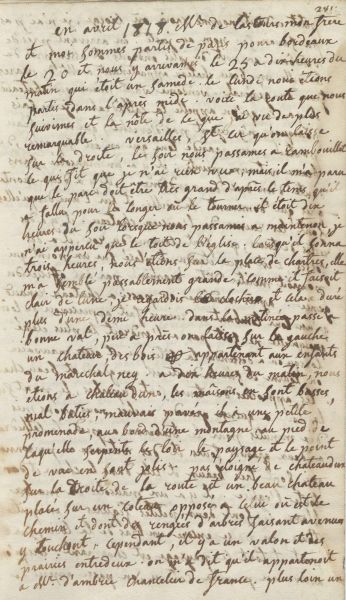 281.
en avril 1818. Mr. de lastours mon frere
et moi sommes partis de paris pour bordeaux
le 20 et nous y arrivames le 25 a dix heures du
matin qui étoit un samedi le lundi nous etions
partis dans l'apres midi, voici la route que nous
suivimes et la note de ce que j'ai vu de plus
remarquable. versailles, St cir qu'on laisse
sur la droite, le soir nous passames a rambouillet
ce qui fit que je n'ai rien vu, mais il m'a paru
que le parc doit être très grand d'après le tems qu'il
a fallu pour le longer ou le tourner. il étoit dix
heures du soir lorsque nous passames a maintenon, je
n'ai apperçu que le toit de l'église. lorsqu'il sonna
trois heures, nous etions sur la place de chartres, elle
m'a semblé passablement grande, comme il faisoit
clair de lune, je regardois clochers et cela dura
plus d'une demi heure. dans la matinée passé
bonneval, peu a près on laisse sur la gauche
un chateau, des bois appartenant aux enfants
du marechal ney. a dix heures du matin, nous
etions a chateaudun, les maisons en sont basses,
mal baties, mauvais pavé, il y a une petite
promenade, au bord d'une montagne, au pied de
laquelle serpente le loir, le paysage et le point
de vue en sont jolis. pas eloigné de chateaudun
sur la droite de la route est un beau chateau
placé sur un coteau opposé a celui où est le
chemin et dont des rangées d'arbres faisant avenue
y touchent. cependant, il y a un valon et des
prairies entredeux. on m'a dit qu'il appartenoit
a Mr. d'ambrai chancelier de france. plus loin un